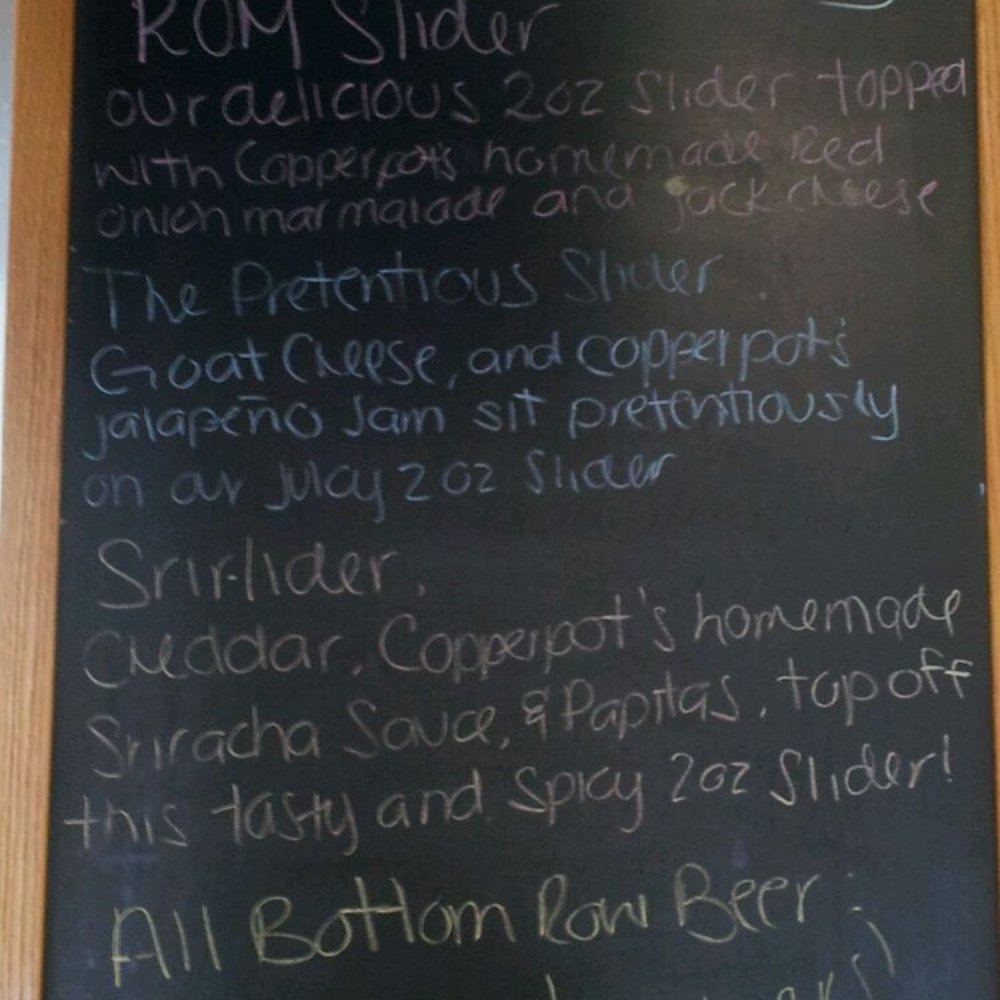 ROM Slider
our delicious 2oz Slider topped
with Copperpots homemade Red
onion marmalade and jack cheese
The Pretentious Slider
Goat Cheese, and copperpot's
jalapeño Jam sit pretentiously
on our Juicy 2oz Slider
Srir-lider.
Cheddar, Copperpot's homemade
Sriracha Sauce, & Papitas, top off
this tasty and Spicy 2oz Slider!
All Bottom Row Beer: